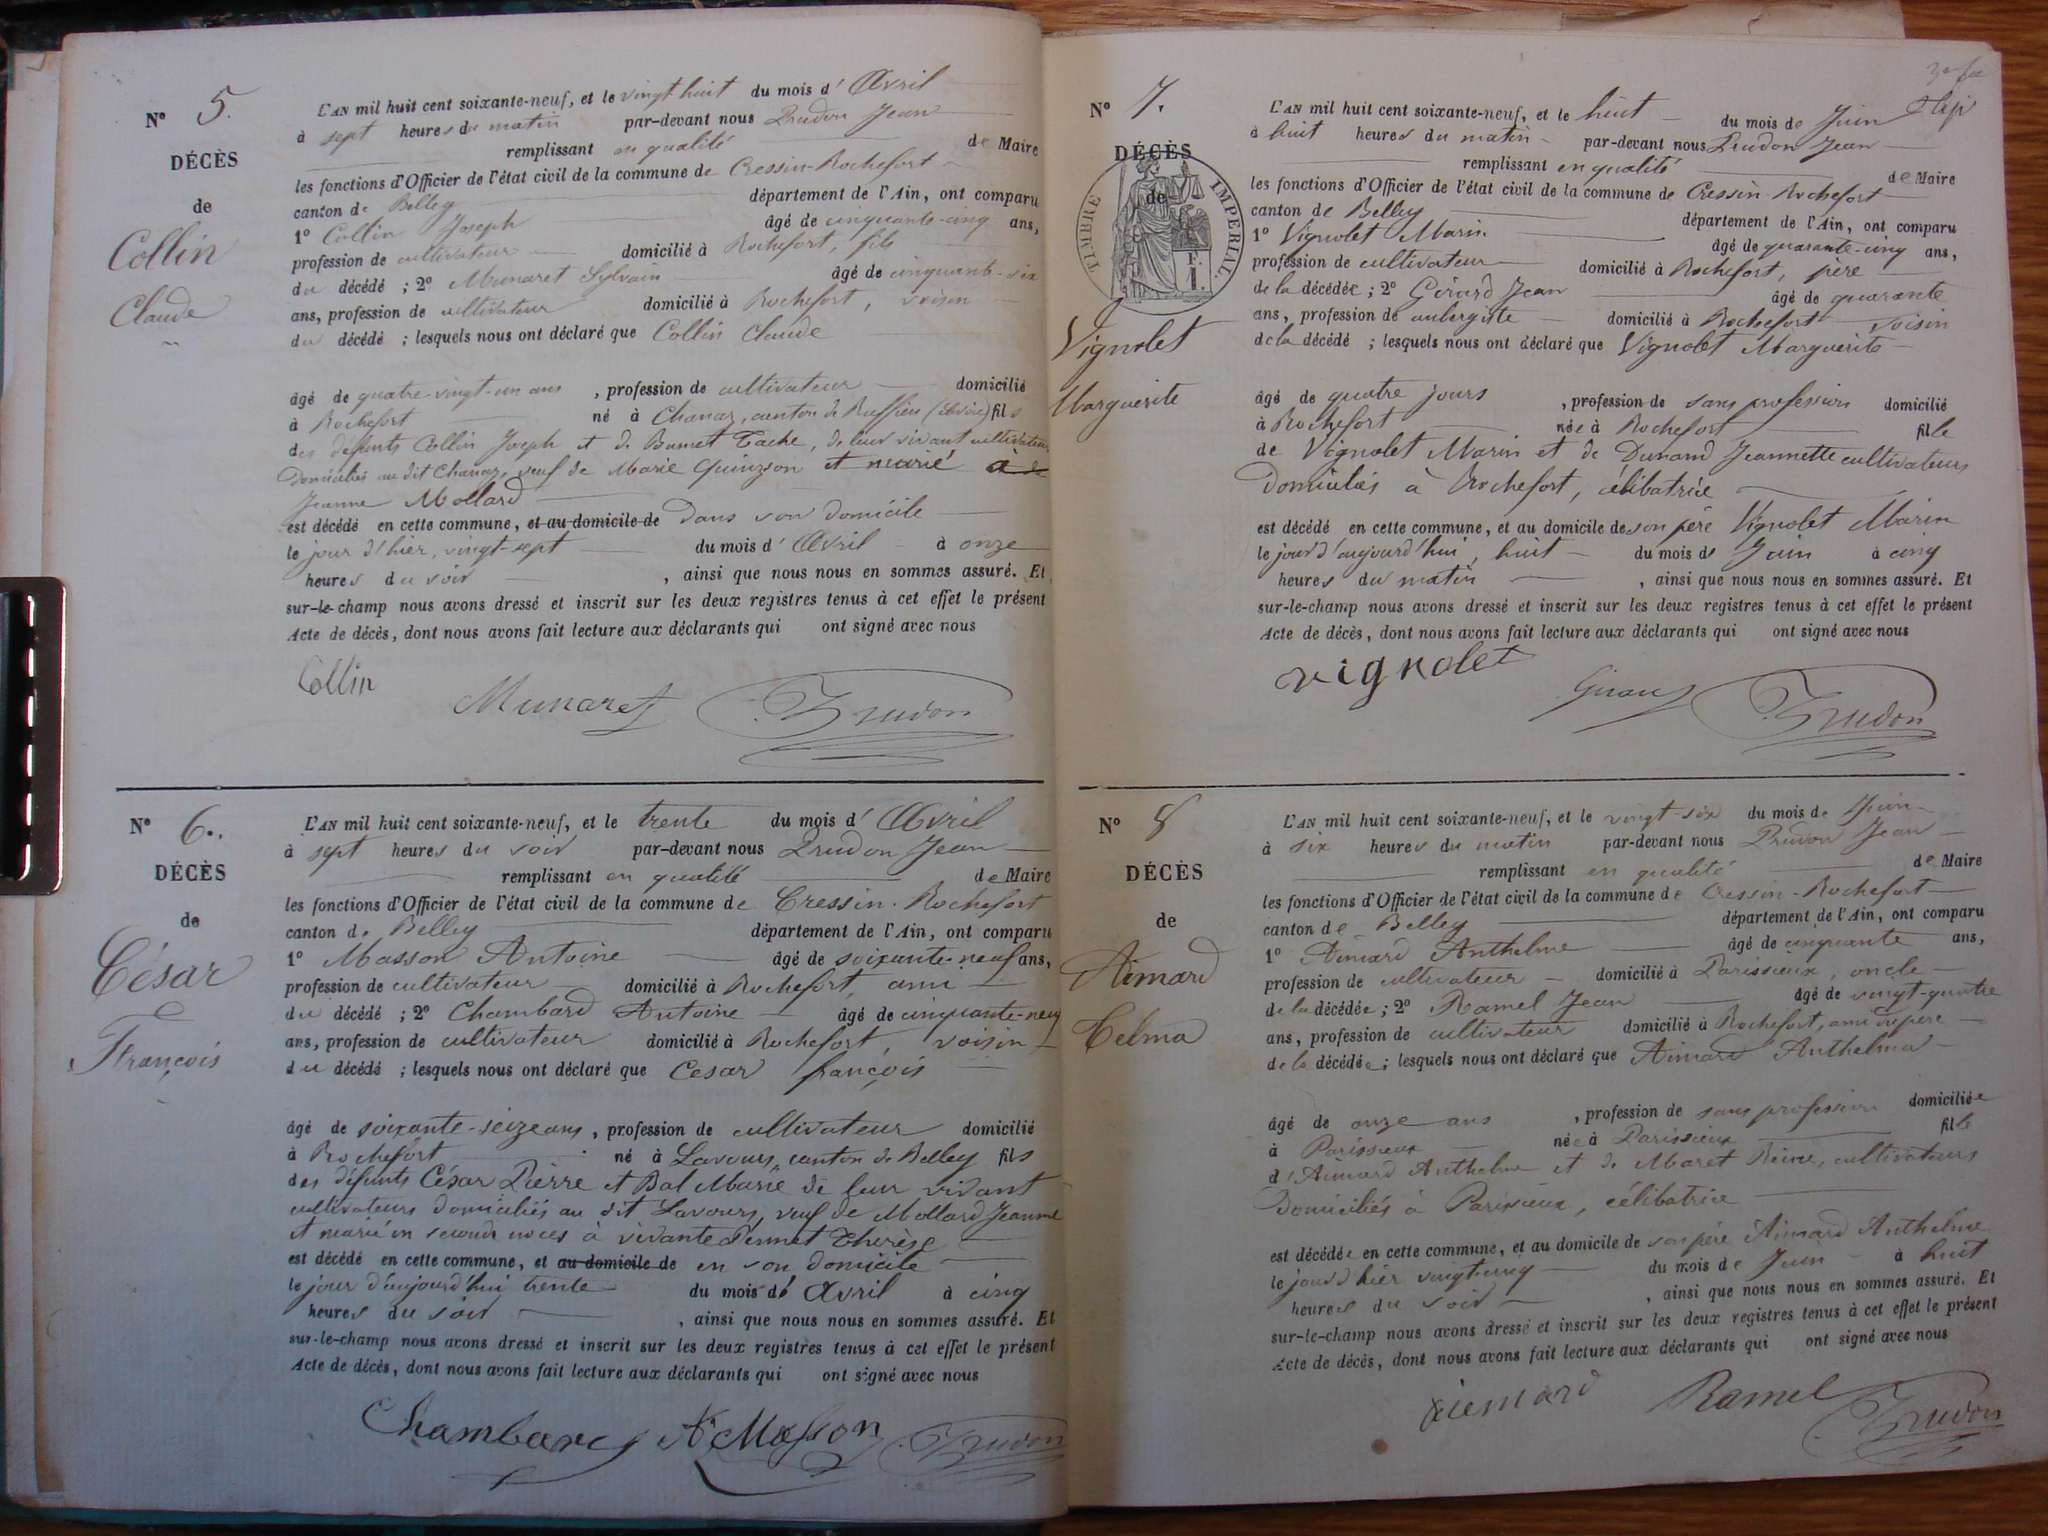 N° 5.
DÉCÈS
de
Collin
Claude
L'AN mil huit cent soixante-neuf, et le vingt-huit du mois d'Avril
à sept heures du matin par-devant nous Prudon Jean
remplissant en qualité de Maire
les fonctions d'Officier de l'état civil de la commune de Cressin-Rochefort
canton de Belley département de l'Ain, ont comparu
1° Collin Joseph âgé de cinquante-cinq ans,
profession de cultivateur domicilié à Rochefort, fils
du décédé ; 2° Munaret Sylvain âgé de cinquante-six
ans, profession de cultivateur domicilié à Rochefort, voisin
du décédé ; lesquels nous ont déclaré que Collin Claude
âgé de quatre-vingt-un ans, profession de cultivateur domicilié
à Rochefort né à Chanaz, canton de Ruffieu (Savoie) fils
des défunts Collin Joseph et de Bumet Tache, de leur vivant cultivateurs
domiciliés au dit Chanaz, veuf de Marie Quinzson et marié à
Jeanne Mollard
est décédé en cette commune, et au domicile de dans son domicile
le jour d'hier, vingt-sept du mois d'Avril à onze
heures du soir, ainsi que nous nous en sommes assuré. Et
sur-le-champ nous avons dressé et inscrit sur les deux registres tenus à cet effet le présent
Acte de décès, dont nous avons fait lecture aux déclarants qui ont signé avec nous
Collin Munaret Prudon
N° 6.
DÉCÈS
de
César
François
L'AN mil huit cent soixante-neuf, et le trente du mois d'Avril
à sept heures du soir par-devant nous Prudon Jean
remplissant en qualité de Maire
les fonctions d'Officier de l'état civil de la commune de Cressin-Rochefort
canton de Belley département de l'Ain, ont comparu
1° Masson Antoine âgé de soixante-neuf ans,
profession de cultivateur domicilié à Rochefort, ami
du décédé ; 2° Chambard Antoine âgé de cinquante-neuf
ans, profession de cultivateur domicilié à Rochefort, voisin
du décédé ; lesquels nous ont déclaré que César françois
âgé de soixante-seize ans, profession de cultivateur domicilié
à Rochefort né à Lavours, canton de Belley fils
des défunts César Pierre et Bal Marie de leur vivant
cultivateurs domiciliés au dit Lavours, veuf de Mollard Jeanne
et marié en seconde noces à vivante Permet Thérèse
est décédé en cette commune, et au domicile de en son domicile
le jour d'aujourd'hui trente du mois d'Avril à cinq
heures du soir, ainsi que nous nous en sommes assuré. Et
sur-le-champ nous avons dressé et inscrit sur les deux registres tenus à cet effet le présent
Acte de décès, dont nous avons fait lecture aux déclarants qui ont signé avec nous
Chambard A. Masson Prudon
N° 7.
DÉCÈS
de
TIMBRE IMPÉRIAL.
Vignolet
Marguerite
L'AN mil huit cent soixante-neuf, et le huit du mois de Juin
à huit heures du matin par-devant nous Prudon Jean
remplissant en qualité de Maire
les fonctions d'Officier de l'état civil de la commune de Cressin-Rochefort
canton de Belley département de l'Ain, ont comparu
1° Vignolet Marin âgé de quarante-cinq ans,
profession de cultivateur domicilié à Rochefort, père
de la décédée ; 2° Girard Jean âgé de quarante
ans, profession de aubergiste domicilié à Rochefort voisin
de la décédé ; lesquels nous ont déclaré que Vignolet Marguerite
âgé de quatre jours, profession de sans profession domicilié
à Rochefort née à Rochefort fille
de Vignolet Marin et de Dunand Jeannette cultivateurs
domiciliés à Rochefort, célibatrice
est décédé en cette commune, et au domicile de son père Vignolet Marin
le jour d'aujourd'hui, huit du mois de Juin à cinq
heures du matin, ainsi que nous nous en sommes assuré. Et
sur-le-champ nous avons dressé et inscrit sur les deux registres tenus à cet effet le présent
Acte de décès, dont nous avons fait lecture aux déclarants qui ont signé avec nous
vignolet Prudon
N° 8
DÉCÈS
de
Aimard
Telma
L'AN mil huit cent soixante-neuf, et le vingt-six du mois de Juin
à six heures du matin par-devant nous Prudon Jean
remplissant en qualité de Maire
les fonctions d'Officier de l'état civil de la commune de Cressin-Rochefort
canton de Belley département de l'Ain, ont comparu
1° Aimard Anthelme âgé de cinquante ans,
profession de cultivateur domicilié à Parissieux, oncle
de la décédée ; 2° Ramel Jean âgé de vingt-quatre
ans, profession de cultivateur domicilié à Rochefort, ami du père
de la décédée ; lesquels nous ont déclaré que Aimard Anthelma
âgé de onze ans, profession de sans profession domiciliée
à Parissieux née à Parissieux fille
d'Aimard Anthelme et de Maret Reine, cultivateurs
domiciliés à Parissieux, célibatrice
est décédée en cette commune, et au domicile de son père Aimard Anthelme
le jour d'hier vingt-cinq du mois de Juin à huit
heures du soir, ainsi que nous nous en sommes assuré. Et
sur-le-champ nous avons dressé et inscrit sur les deux registres tenus à cet effet le présent
Acte de décès, dont nous avons fait lecture aux déclarants qui ont signé avec nous
Ramel Prudon